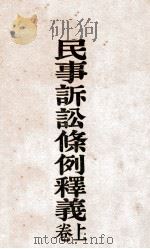 民事訴訟條例釋義
上卷